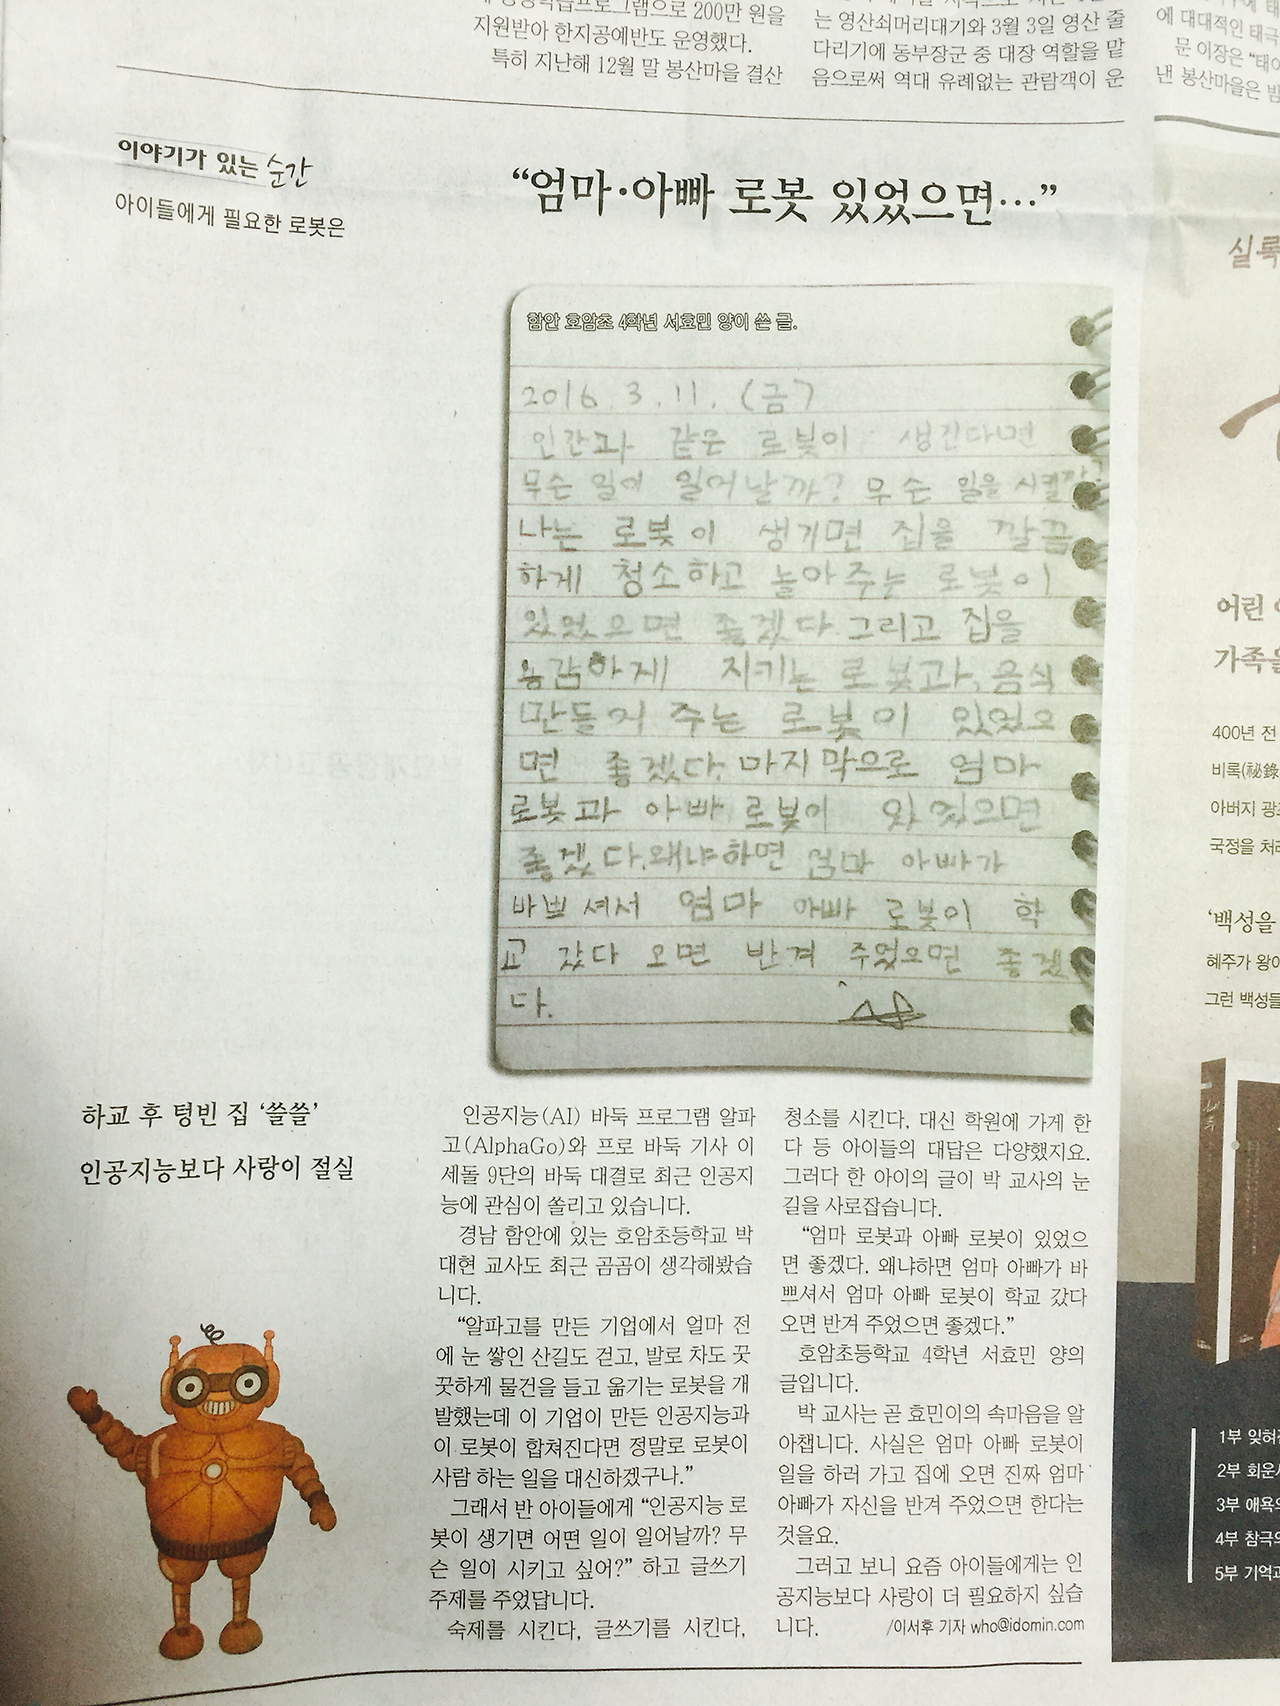 프로그램으로 200만 원을
지원받아 한지공예반도 운영했다.
특히 지난해 12월 말 봉산마을 결산
는 영산쇠머리대기와 3월 3일 영산 줄
다리기에 동부장군 중 대장 역할을 맡
음으로써 역대 유례없는 관람객이 운
에 대대적인 태극
문 이장은 “태이
낸 봉산마을은 밤
이야기가 있는 순간
아이들에게 필요한 로봇은
“엄마·아빠 로봇 있었으면…”
함안 호암초 4학년 서효민 양이 쓴 글.
2016. 3. 11. (금)
인간과 같은 로봇이 생긴다면
무슨 일이 일어날까? 무슨 일을 시킬까?
나는 로봇이 생기면 집을 깔끔
하게 청소하고 놀아주는 로봇이
있었으면 좋겠다. 그리고 집을
용감하게 지키는 로봇과, 음식
만들어 주는 로봇이 있었으
면 좋겠다. 마지막으로 엄마
로봇과 아빠 로봇이 있었으면
좋겠다. 왜냐하면 엄마 아빠가
바쁘셔서 엄마 아빠 로봇이 학
교 갔다 오면 반겨 주었으면 좋겠
다.
하교 후 텅빈 집 ‘쓸쓸’
인공지능보다 사랑이 절실
인공지능(AI) 바둑 프로그램 알파
고(AlphaGo)와 프로 바둑 기사 이
세돌 9단의 바둑 대결로 최근 인공지
능에 관심이 쏠리고 있습니다.
경남 함안에 있는 호암초등학교 박
대현 교사도 최근 곰곰이 생각해봤습
니다.
“알파고를 만든 기업에서 얼마 전
에 눈 쌓인 산길도 걷고, 발로 차도 꿋
꿋하게 물건을 들고 옮기는 로봇을 개
발했는데 이 기업이 만든 인공지능과
이 로봇이 합쳐진다면 정말로 로봇이
사람 하는 일을 대신하겠구나.”
그래서 반 아이들에게 “인공지능 로
봇이 생기면 어떤 일이 일어날까? 무
슨 일이 시키고 싶어?” 하고 글쓰기
주제를 주었답니다.
숙제를 시킨다, 글쓰기를 시킨다,
청소를 시킨다, 대신 학원에 가게 한
다 등 아이들의 대답은 다양했지요.
그러다 한 아이의 글이 박 교사의 눈
길을 사로잡습니다.
“엄마 로봇과 아빠 로봇이 있었으
면 좋겠다. 왜냐하면 엄마 아빠가 바
쁘셔서 엄마 아빠 로봇이 학교 갔다
오면 반겨 주었으면 좋겠다.”
호암초등학교 4학년 서효민 양의
글입니다.
박 교사는 곧 효민이의 속마음을 알
아챕니다. 사실은 엄마 아빠 로봇이
일을 하러 가고 집에 오면 진짜 엄마
아빠가 자신을 반겨 주었으면 한다는
것을요.
그러고 보니 요즘 아이들에게는 인
공지능보다 사랑이 더 필요하지 싶습
니다. /이서후 기자 who@idomin.com
실록
어린
가족을
400년 전
비록(秘錄
아버지 광
국정을 처
‘백성을
혜주가 왕이
그런 백성들
1부 잊혀
2부 회운
3부 애욕의
4부 참극의
5부 기억과